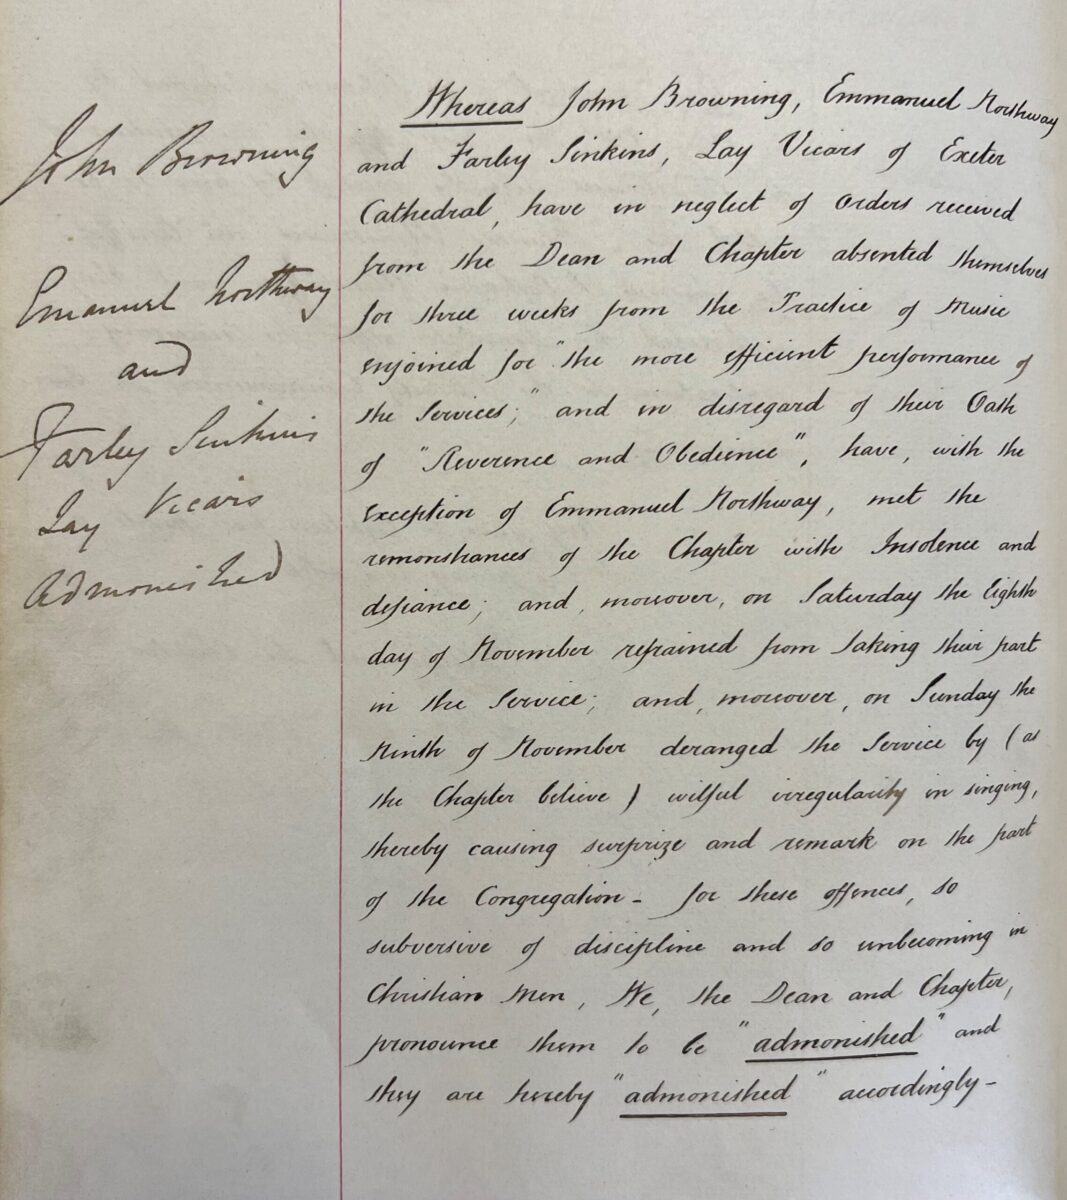 John Browning
Emanuel Northway
and
Farley Sinkins
Lay Vicars
Admonished
Whereas John Browning, Emmanuel Northway
and Farley Sinkins, Lay Vicars of Exeter
Cathedral, have in neglect of orders received
from the Dean and Chapter absented themselves
for three weeks from the Practice of Music
enjoined for "the more efficient performance of
the Services;" and in disregard of their Oath
of "Reverence and Obedience", have, with the
exception of Emmanuel Northway, met the
remonstrances of the Chapter with Insolence and
defiance; and, moreover, on Saturday the Eighth
day of November refrained from taking their part
in the Service; and, moreover, on Sunday the
Ninth of November deranged the Service by (as
the Chapter believe) wilful irregularity in singing,
thereby causing surprize and remark on the part
of the Congregation - for these offences, so
subversive of discipline and so unbecoming in
Christian Men, We, the Dean and Chapter,
pronounce them to be "admonished" and
they are hereby "admonished" accordingly -